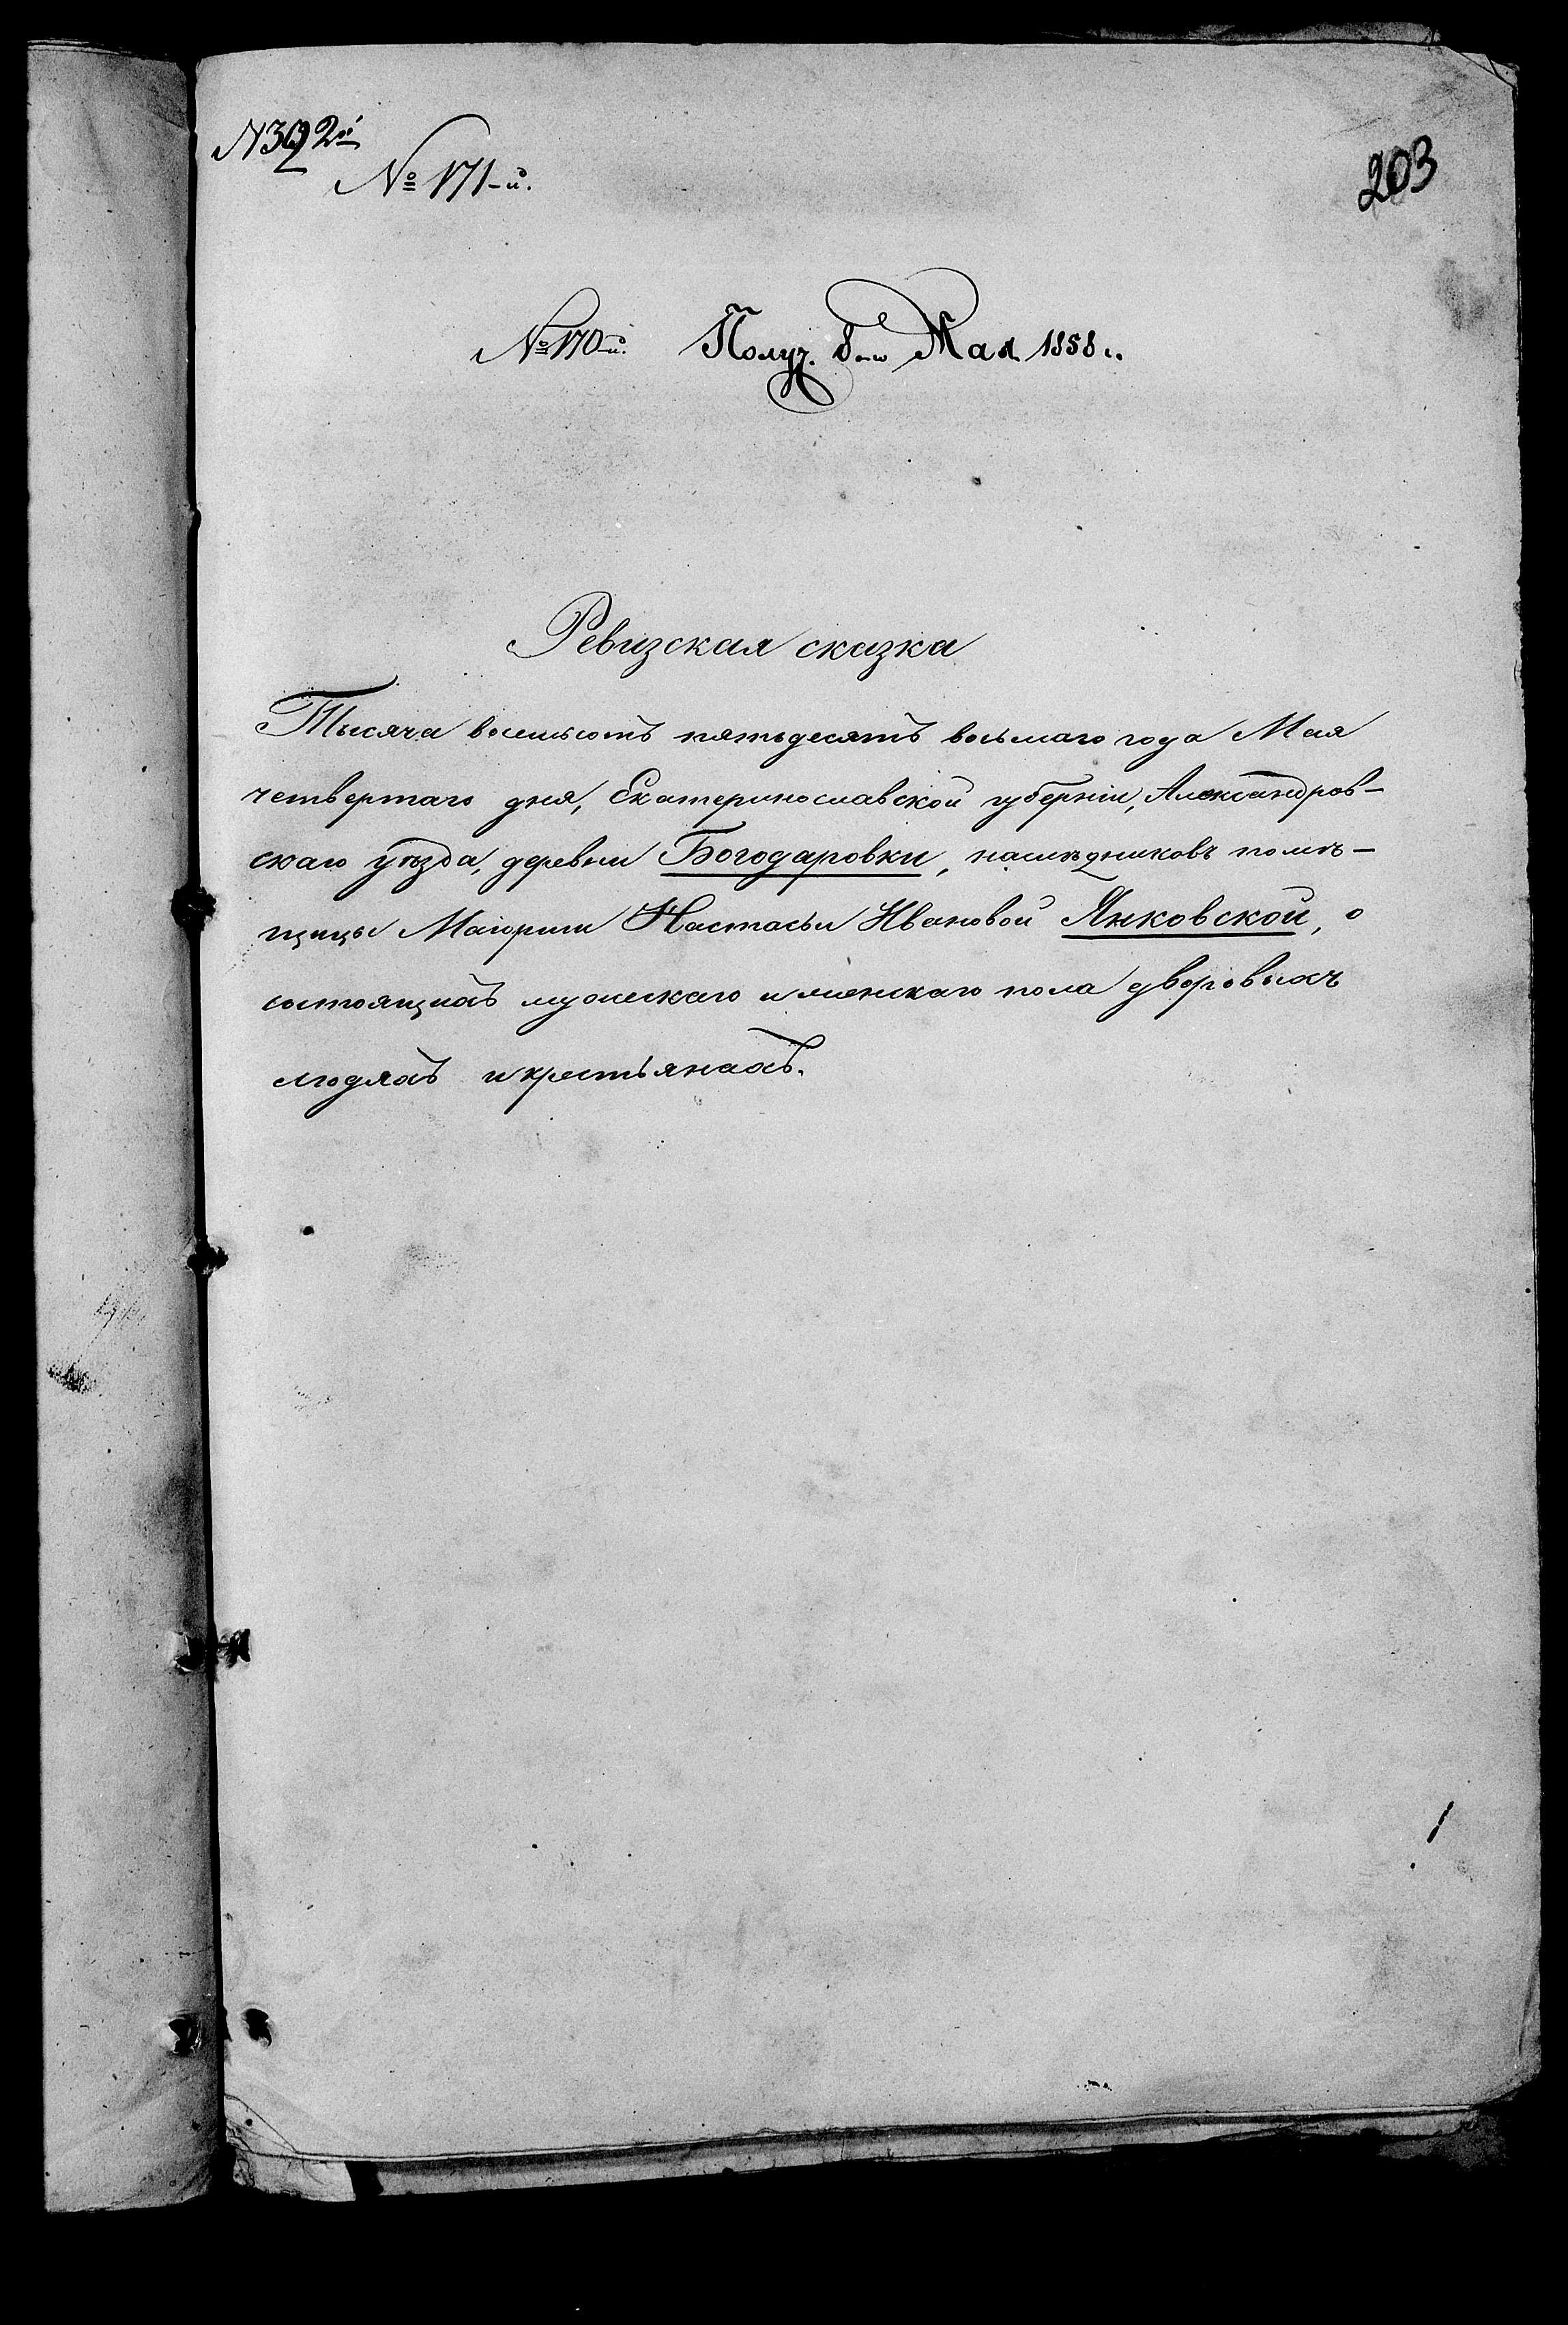 N 392й
№ 171-й.
203
№ 170-й. Получ. 8-го Мая 1858 г.
Ревизская сказка
Тысяча восемьсотъ пятьдесятъ восьмаго года Мая
четвертаго дня, Екатеринославской губерніи, Александров-
скаго уѣзда, деревни Богодаровки, наслѣдниковъ помѣ-
щицы Маіорши Настасьи Ивановой Янковской, о
состоящихъ мужескаго и женскаго пола дворовыхъ
людяхъ и крестьянахъ.
1